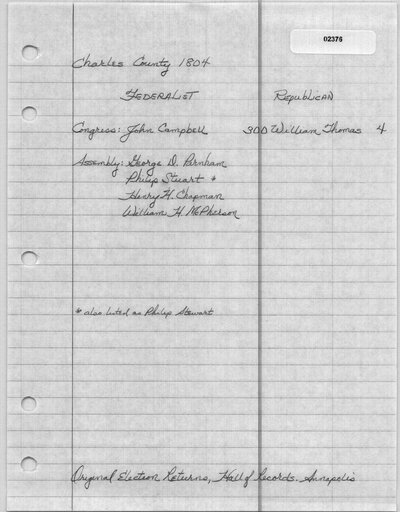 02376
Charles County 1804
FEDERALIST REPUBLICAN
Congress: John Campbell 300 William Thomas 4
Assembly: George D. Parnham
Philip Stuart *
Henry H. Chapman
William H. McPherson
* also listed as Philip Stewart
Original Election Returns, Hall of Records. Annapolis